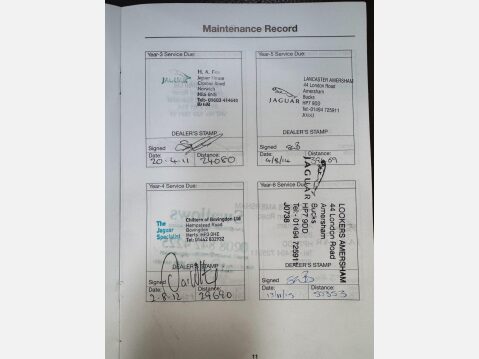 Maintenance Record
Year-3 Service Due:
JAGUAR
H. A. Fox
Jaguar House
Norwich
Tel: 01603 414641
DEALER'S STAMP
Signed
Date: Distance:
20.4.11 24080
Year-5 Service Due:
LANCASTER AMERSHAM
44 London Road
Amersham
Bucks
HP7 9DD
Tel: 01494 725911
JAGUAR
DEALER'S STAMP
Signed
Date: Distance:
Year-4 Service Due:
The
Jaguar
Specialist
Chiltern of Bovingdon Ltd
Hempstead Road
Bovingdon
Herts HP3 0HE
DEALER'S STAMP
Signed
Date: Distance:
2-8-12 29690
Year-6 Service Due:
JAGUAR
LOOKERS AMERSHAM
44 London Road
Amersham
Bucks
HP7 9DD
Tel: 01494 725911
J0738
DEALER'S STAMP
Signed
Date: Distance:
11